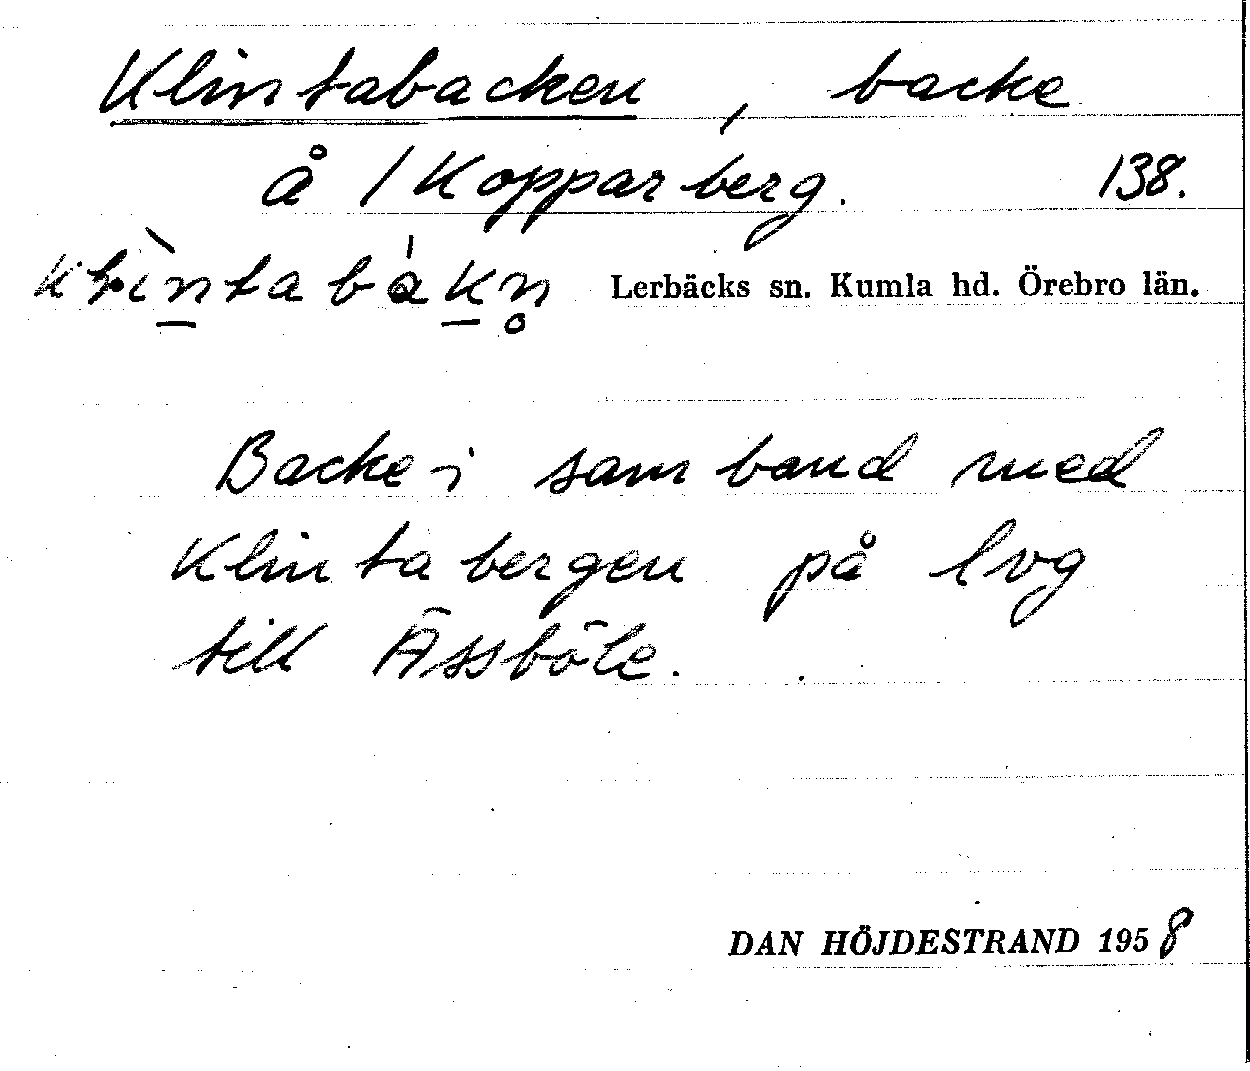 Klintabacken, backe
å 1 Kopparberg. 138.
klìntabákn̥ Lerbäcks sn. Kumla hd. Örebro län.
Backe i samband med
Klintabergen på lvg
till Åssböle.
DAN HÖJDESTRAND 1958